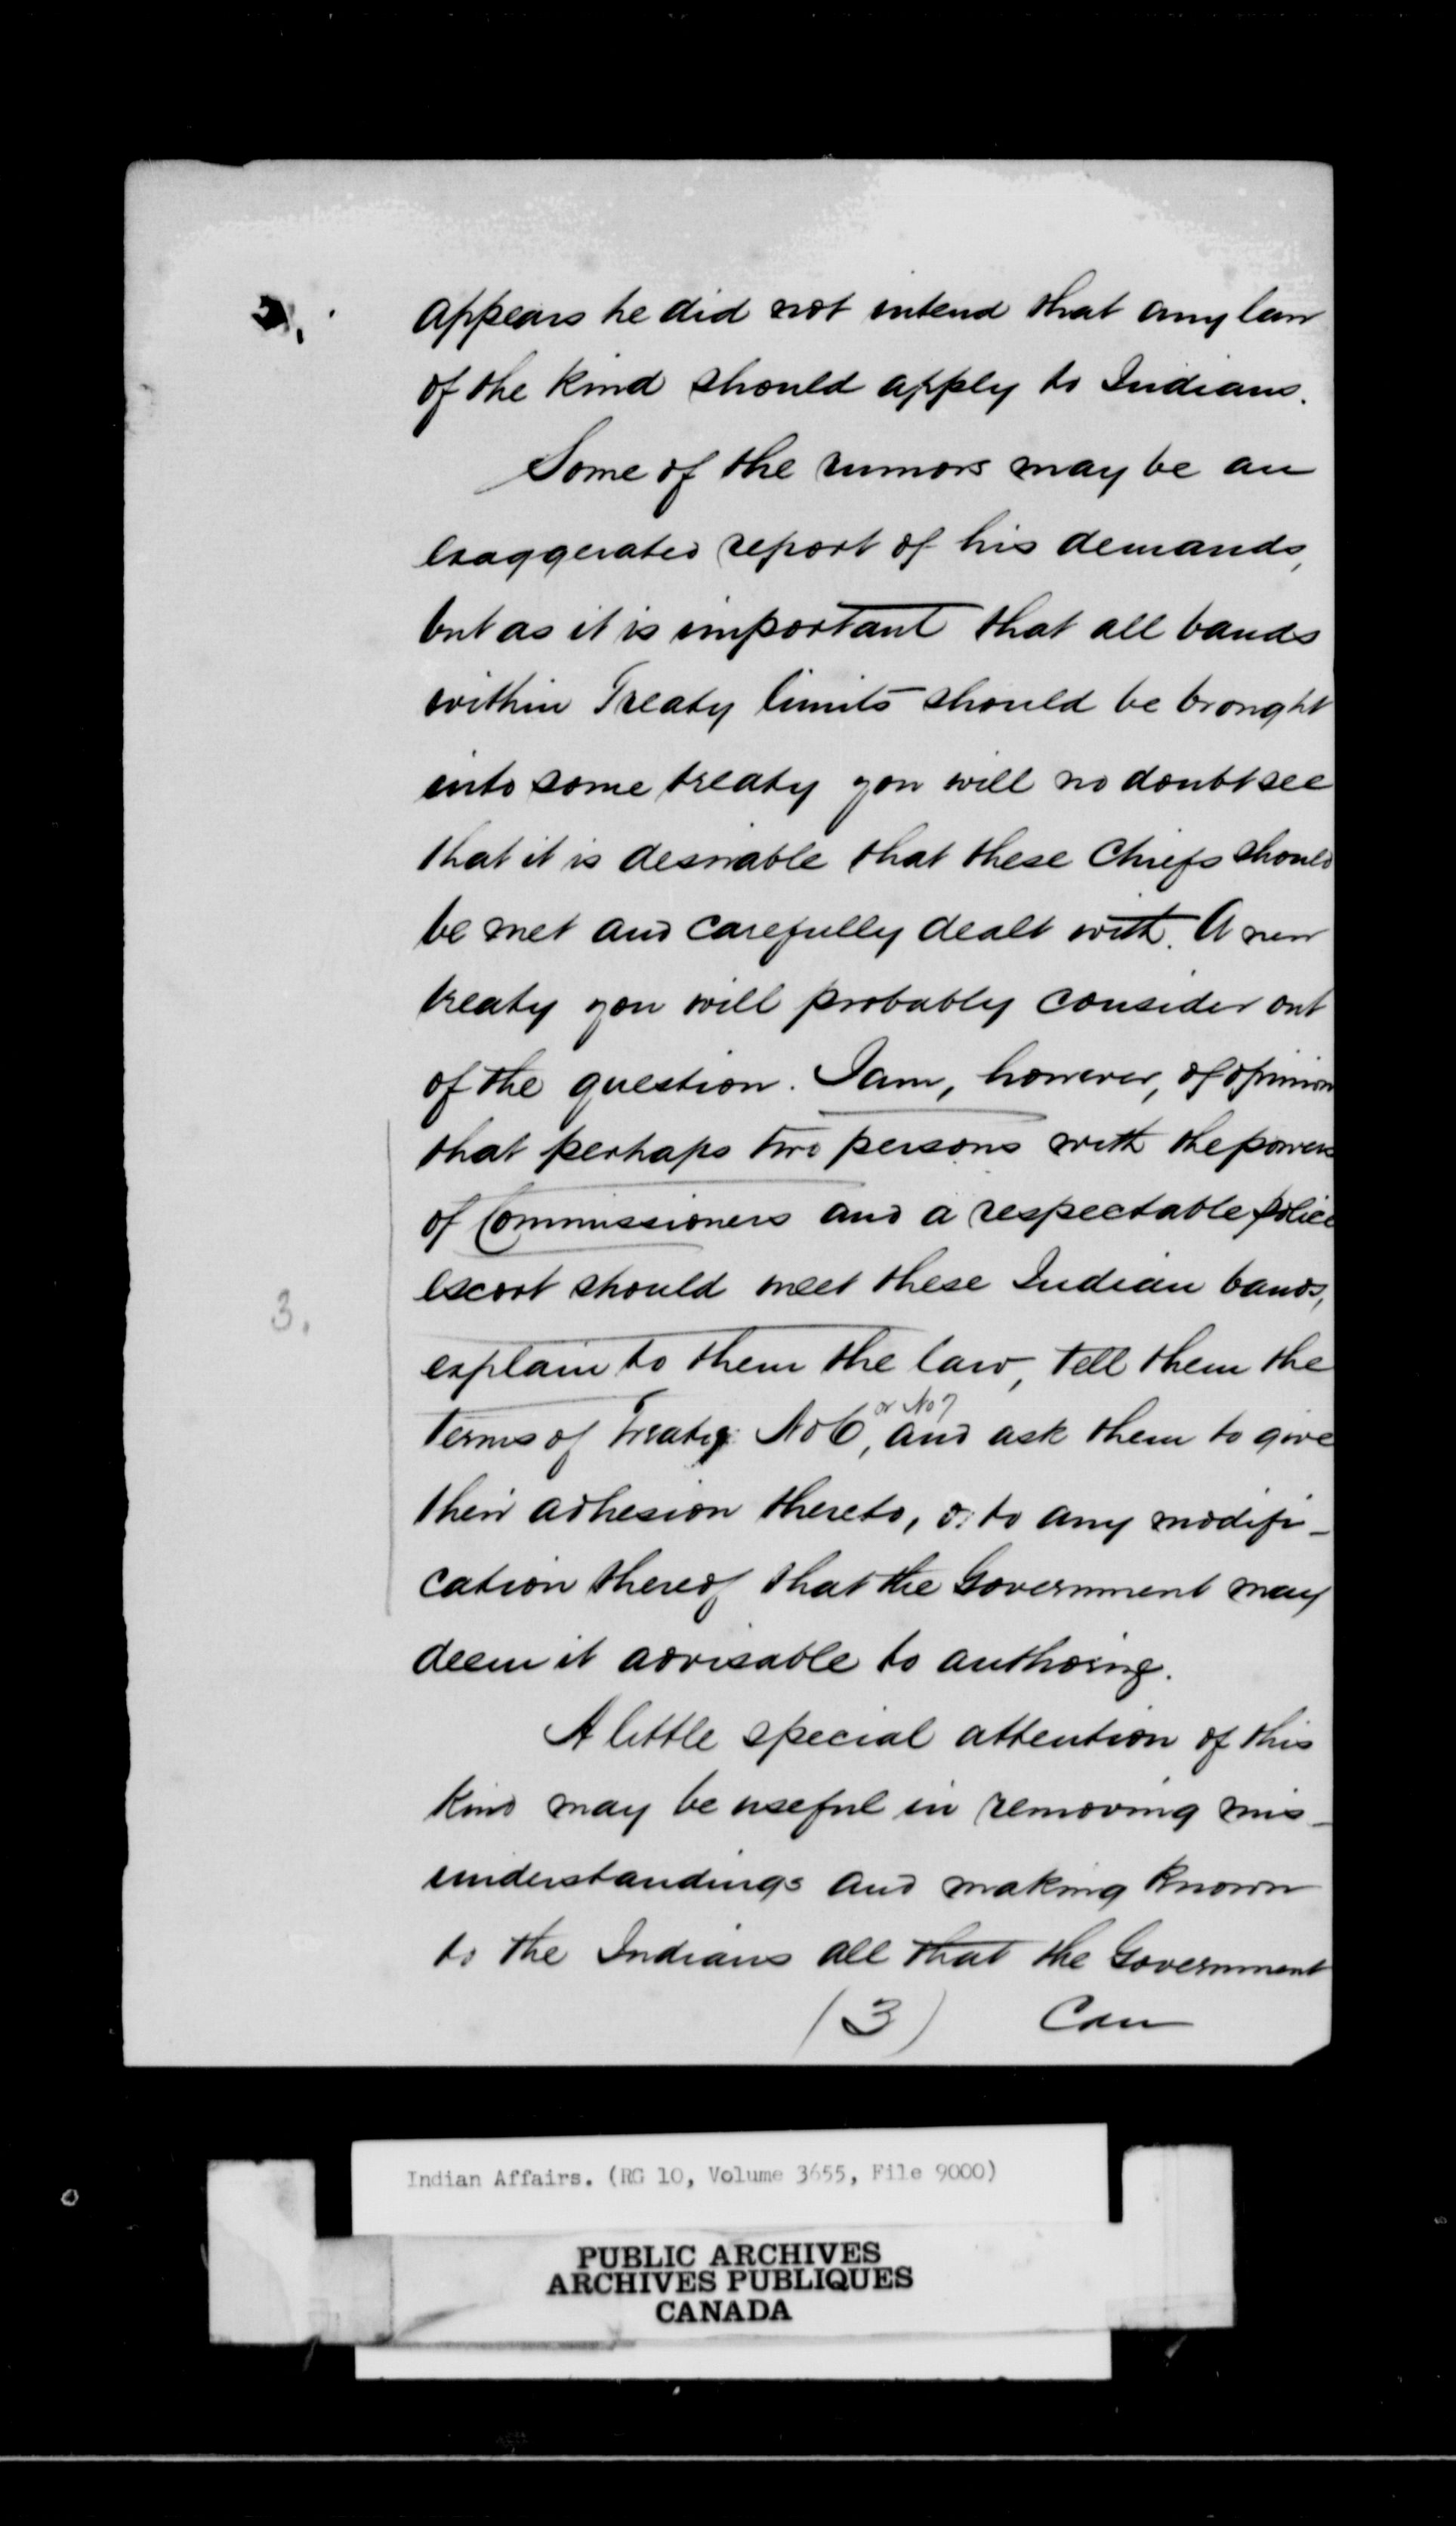 appears he did not intend that any law
of the kind should apply to Indians.
Some of the rumors may be an
exaggerated report of his demands,
but as it is important that all bands
within Treaty limits should be brought
into some treaty you will no doubt see
that it is desirable that these Chiefs should
be met and carefully dealt with. A new
treaty you will probably consider out
of the question. I am, however, of opinion
that perhaps two persons with the powers
of Commissioners and a respectable police
escort should meet these Indian bands,
3.
explain to them the law, tell them the
or No 7
terms of Treaty No 6, and ask them to give
their adhesion thereto, or to any modifi-
cation thereof that the Government may
deem it advisable to authorize.
A little special attention of this
kind may be useful in removing mis-
understandings and making known
to the Indians all that the Government
(3) Can
Indian Affairs. (RG 10, Volume 3655, File 9000)
PUBLIC ARCHIVES
ARCHIVES PUBLIQUES
CANADA